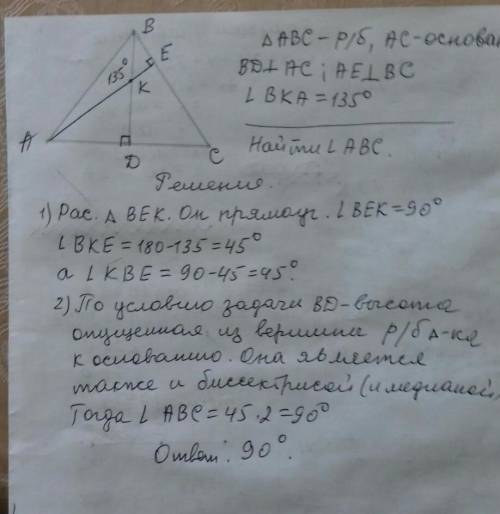 B
E
135°
K
A
D
C
△ABC – р/б, AC-основан
BD⊥AC; AE⊥BC
∠BKA = 135°
Найти ∠ABC.
Решение.
1) Рас. △ BEK. Он прямоуг. ∠BEK = 90°
∠BKE = 180-135 = 45°
а ∠KBE = 90-45 = 45°.
2) По условию задачи BD-высота
опущенная из вершины р/б △-ка
к основанию. Она является
также и биссектрисой (и медианой)
Тогда ∠ ABC = 45·2 = 90°
Ответ: 90°.